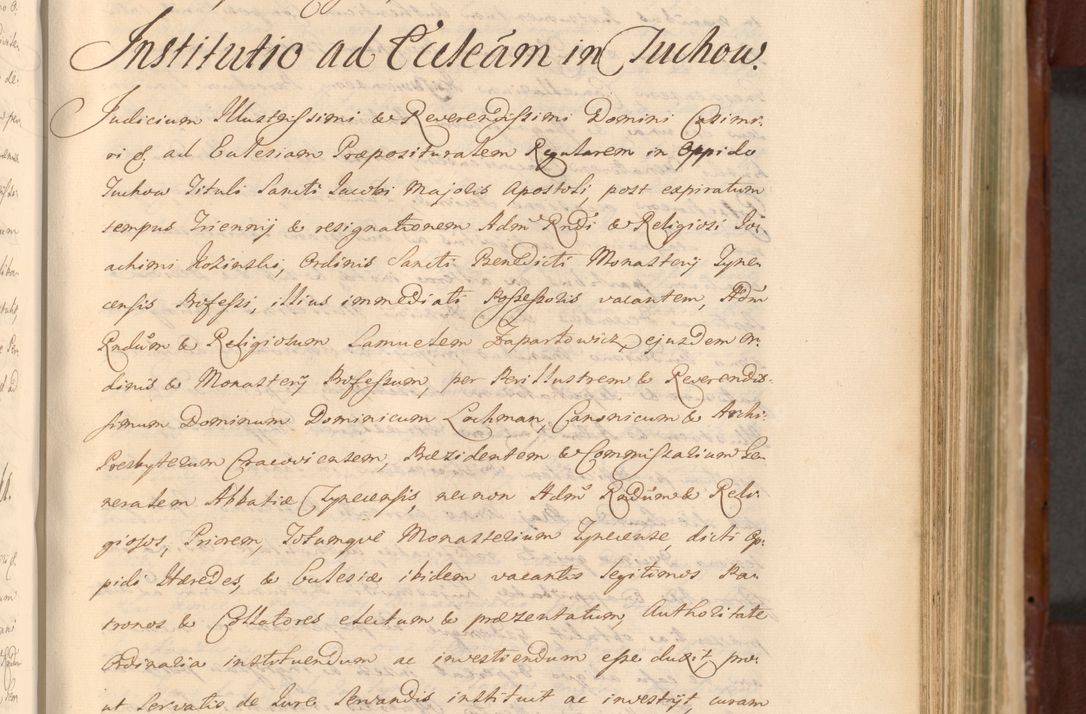 Institutio ad Ecclesiam in Tuchow.
Judicium Illustrissimi & Reverendissimi Domini Casimi-
ri &. ad Eclesiam Præposituralem Regularem in Oppido
Tuchow Tituli Sancti Jacobi Majoris Apostoli, post expiratum
tempus Triennij & resignationem Admˢ Rndi & Religiosi Jo-
achimi Kozinski, Ordinis Sancti Benedicti Monasterij Tyne-
censis Professi, illius immediati Possessoris vacantem, Adm
Rndum & Religiosum Samuelem Zapartowicz ejusdem Or-
dinis & Monasterij Professum, per Perillustrem & Reverendis-
simum Dominum Dominicum Lochman, Canonicum & Archi-
Presbyterum Cracoviensem, Præzidentem & Commissarium Ge-
neralem Abbatiæ Tynecensis, necnon Admˢ Rndum & Reli-
giosos, Priorem, Totumqvè Monasterium Tynecense dicti Op-
pidi Hæredes, & Eclesiæ ibidem vacantis legitimos Pa-
tronos & Collatores electum & præzentatum Authoritate
Ordinaria instituendum ac investiendum esse duxit pro-
ut servatis de Jure servandis instituit ac investijt, curam